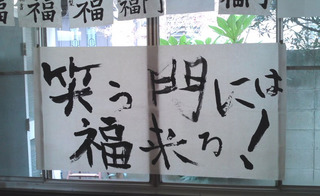 福 福 福門 福門
笑う門には
福来る!